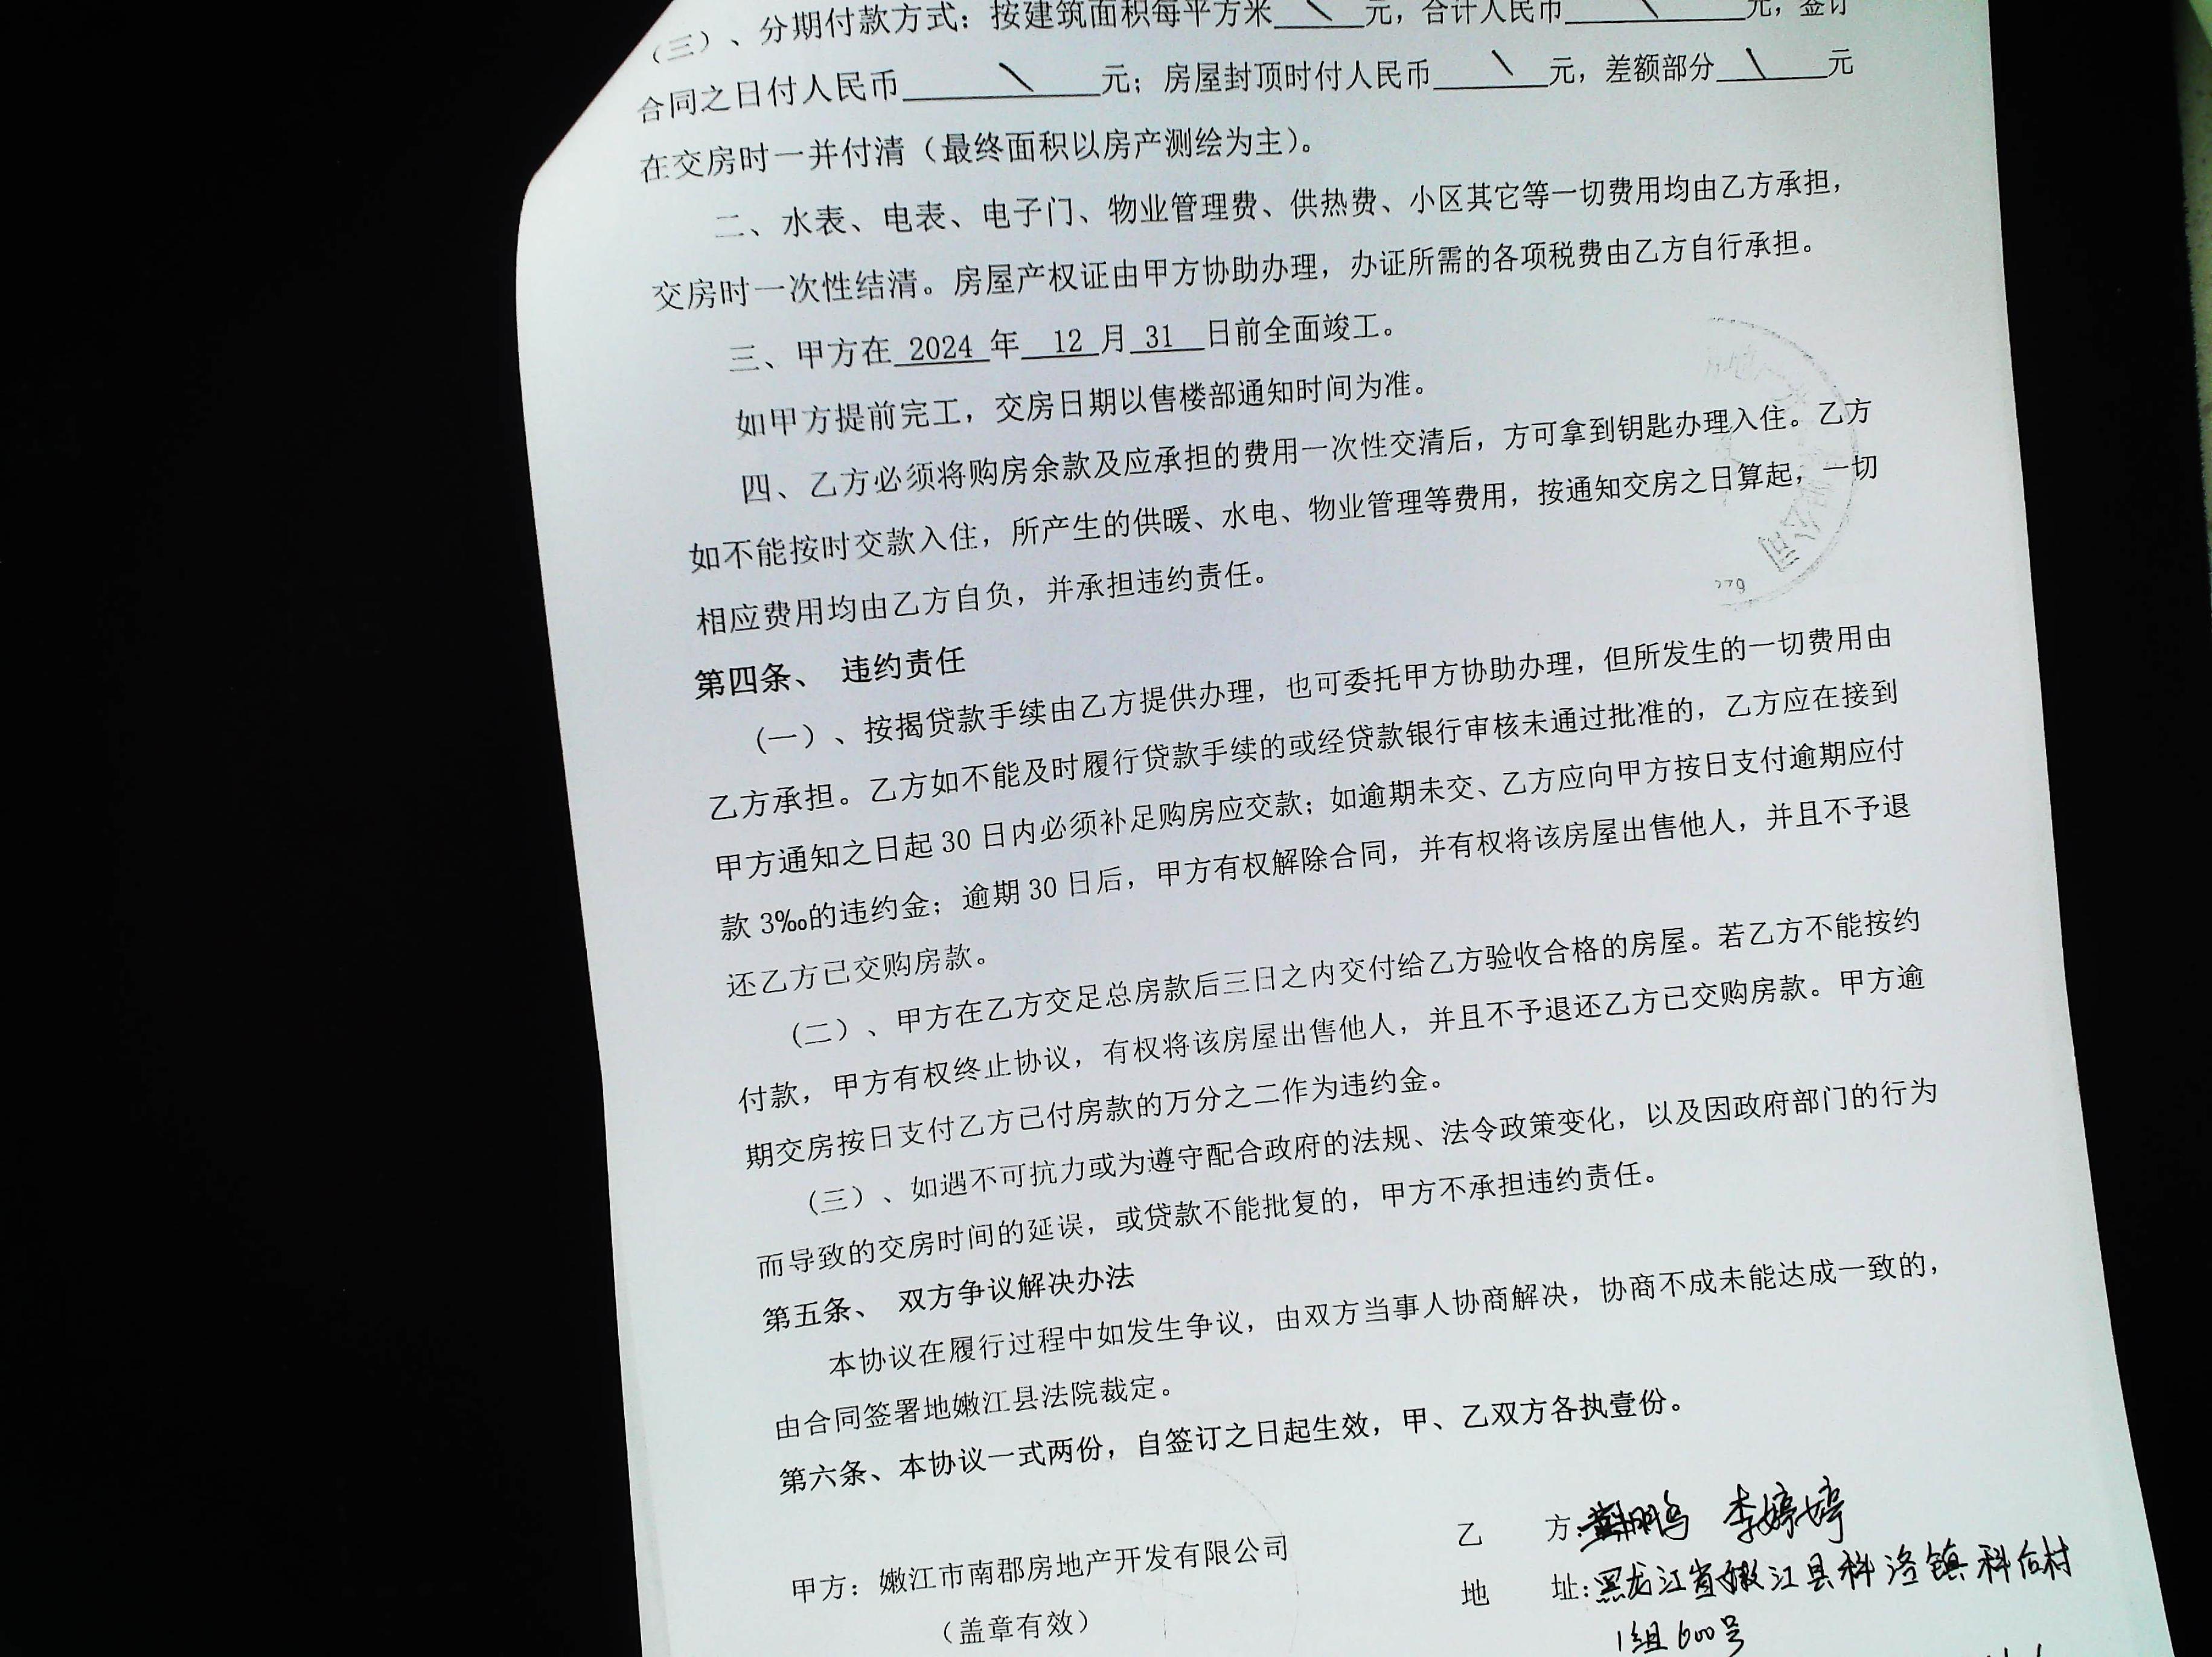 （三）、分期付款方式：按建筑面积每平方米＼元，合计人民币＼元，签订
合同之日付人民币＼元；房屋封顶时付人民币＼元，差额部分＼元
在交房时一并付清（最终面积以房产测绘为主）。
二、水表、电表、电子门、物业管理费、供热费、小区其它等一切费用均由乙方承担，
交房时一次性结清。房屋产权证由甲方协助办理，办证所需的各项税费由乙方自行承担。
三、甲方在 2024 年 12 月 31 日前全面竣工。
如甲方提前完工，交房日期以售楼部通知时间为准。
四、乙方必须将购房余款及应承担的费用一次性交清后，方可拿到钥匙办理入住。乙方
如不能按时交款入住，所产生的供暖、水电、物业管理等费用，按通知交房之日算起，一切
相应费用均由乙方自负，并承担违约责任。
公司
第四条、 违约责任
（一）、按揭贷款手续由乙方提供办理，也可委托甲方协助办理，但所发生的一切费用由
乙方承担。乙方如不能及时履行贷款手续的或经贷款银行审核未通过批准的，乙方应在接到
甲方通知之日起 30 日内必须补足购房应交款；如逾期未交、乙方应向甲方按日支付逾期应付
款 3‰的违约金；逾期 30 日后，甲方有权解除合同，并有权将该房屋出售他人，并且不予退
还乙方已交购房款。
（二）、甲方在乙方交足总房款后三日之内交付给乙方验收合格的房屋。若乙方不能按约
付款，甲方有权终止协议，有权将该房屋出售他人，并且不予退还乙方已交购房款。甲方逾
期交房按日支付乙方已付房款的万分之二作为违约金。
（三）、如遇不可抗力或为遵守配合政府的法规、法令政策变化，以及因政府部门的行为
而导致的交房时间的延误，或贷款不能批复的，甲方不承担违约责任。
第五条、 双方争议解决办法
本协议在履行过程中如发生争议，由双方当事人协商解决，协商不成未能达成一致的，
由合同签署地嫩江县法院裁定。
第六条、本协议一式两份，自签订之日起生效，甲、乙双方各执壹份。
乙 方： 李婷婷
甲方：嫩江市南郡房地产开发有限公司
地 址：黑龙江省嫩江县科洛镇科后村
（盖章有效）
1组600号